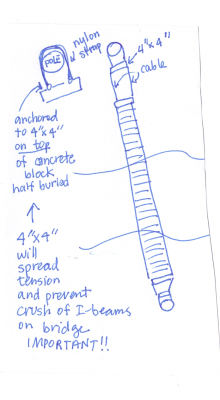 nylon
strap
POLE
4"x4"
cable
anchored
to 4"x4"
on top
of concrete
block
half buried
4"x4"
will
spread
tension
and prevent
crush of I-beams
on bridge
IMPORTANT!!